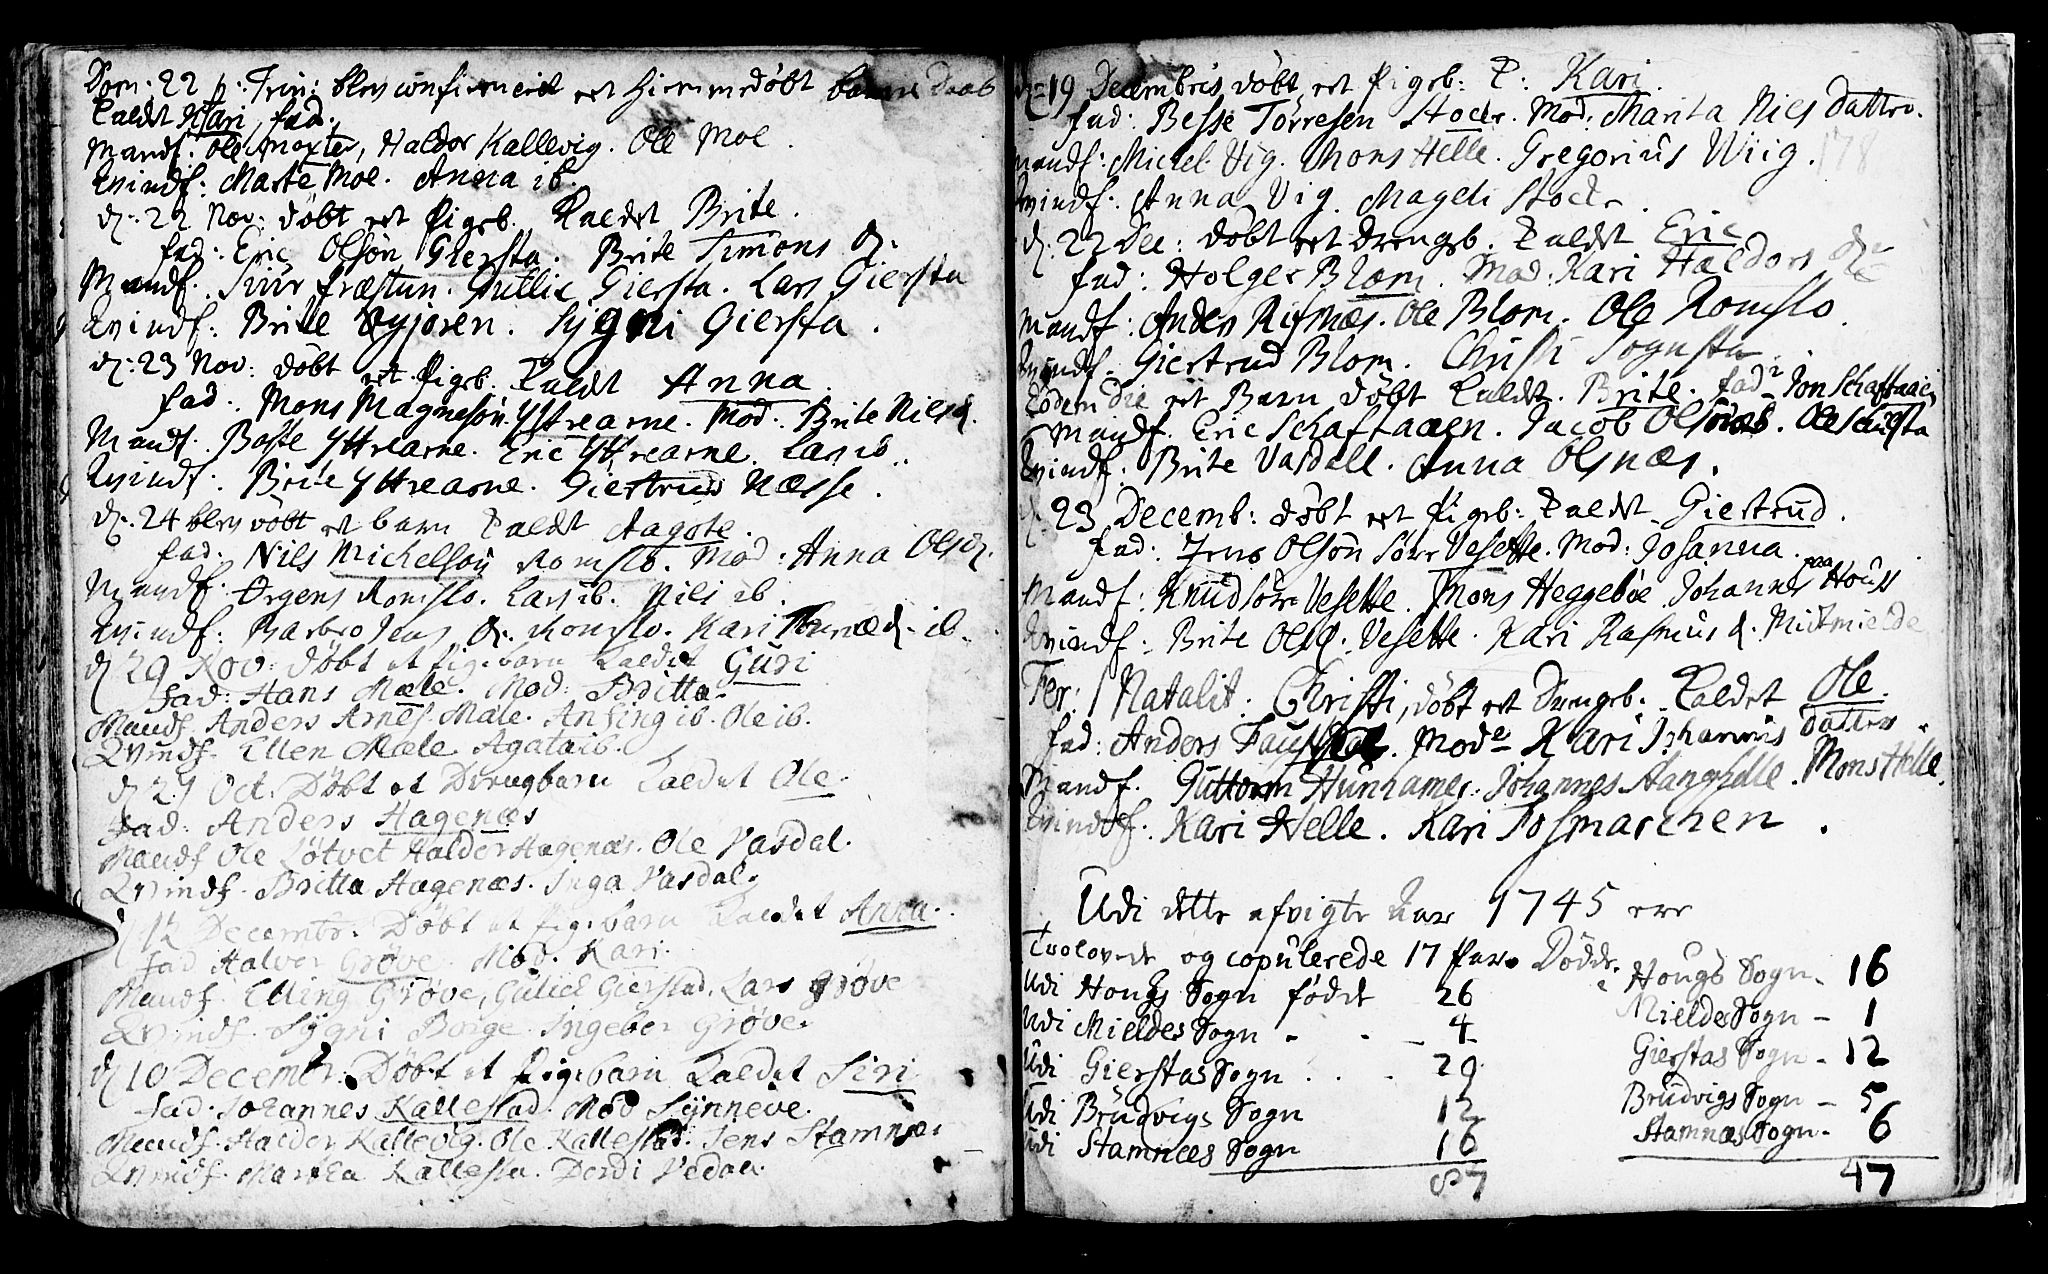 Dom: 22 p: Trin: blev confirmeret et hiemmedøbt barns Daab
Kaldt Kari, fad.
Mandf: Ole Moxter, Haldor Kallevig. Ole Moe.
Qvindf: Marte Moe. Anna ib.
d: 22 Nov: døbt et Pigeb. Kaldet Brite.
fad: Eric Olsøn Giersta. Brite Simons d.
Mandf. Siur Præstun. Gullic Giersta. Lars Giersta
Qvindf: Brite Øyjoren. Sygni Giersta.
d: 23 Nov: døbt et Pigeb. Kaldt Anna.
fad: Mons Magnesøn Yttrearne. Mod: Brite Nilsd.
Mandf. Baste Yttrearne. Eric Yttrearne. Lars ib.
Qvindf: Brite Yttrearne. Giertrud Næsse.
d: 24 blev døbt et barn Kaldt Aagote.
fad. Nils Michelsøn Romslo. Mod: Anna Olsd.
Mandf. Ørgens Romslo. Lars ib. Nils ib.
Qvindf: Barbro Jens d. Romslo. Kari d. ib.
d 29 Nov: døbt et Pigebarn Kaldet Guri
fad: Hans Mæle. Mod: Britta.
Mandf. Anders Arnes. Mæle. Ansing ib. Ole ib.
Qvindf. Ellen Mæle Agata ib.
d 29 Oct. Døbt et Drengbarn Kaldet Ole.
fad: Anders Hagenæs
Mandf Ole Løtvet Haldor Hagenæs. Ole Vasdal.
Qvindf. Britta Hagenæs. Inga Vasdal.
d 12 Decembr. Døbt et Pigebarn Kaldet Anna.
fad Halver Grøve. Mod. Kari.
Mandf. Elling Grøve, Gulick Gierstad. Lars Grøve
Qvindf. Sygni Borge. Ingebor Grøve.
d 10 Decembr. Døbt et Pigebarn Kaldet Siri
fad. Johannes Kallestad. Mod Synneve.
Mandf. Halder Kallevig. Ole Kallestad. Jens Stamnes
Qvindf. Martha Kallesta. Dordi Vedaa.
d: 19 Decembris døbt et Pigeb: K: Kari.
fad: Besse Torresen Stocke. Mod: Marita Nils datter.
Mandf: Michel Vig. Mons Helle. Gregorius Wiig. 178
Qvindf: Anna Vig. Mageli Stocke.
d. 22 Dec: døbt et Drengeb. Kaldet Eric
fad: Holger Blom. Mod: Kari Haldors dr
Mandf: Anders Rifnæs. Ole Blom. Ole Romslo.
Qvindf. Giertrud Blom. Christi Sognsta.
Eodem Die et Barn døbt Kaldt. Brite. fadr Jon Schaftaaen
Mandf. Eric Schaftaaen. Jacob Olsnæs. Ole
Qvindf. Brite Vasdall. Anna Olsnæs.
d 23 Decemb: døbt et Pigeb: Kaldt Giertrud.
fad: Jens Olsøn Søre Vesette. Mod: Josanna.
Mandf: Knud Søre Vesette. Mons Heggebøe. Johannes paa Houss
Qvindf: Brite Olsd. Vesette. Kari Rasmus d. Midtmielde
Fer: 1 Natalit: Christi, døbt et Drengeb. Kaldet Ole.
fad: Anders . Modr Kari Johannis datter.
Mandf. Guttorm Hunhamer. Johannes Stanghelle. Mons Helle.
Qvindf. Kari Helle. Kari Tosmarchen.
Udi dette afvigte Aar 1745 ere
Troelovede og copulerede 17 Par. Dødde.
Udi Hougs Sogn fødde 26 i Hougs Sogn - 16
Udi Mieldes Sogn - 4 Mieldes Sogn - 1
Udi Gierstas Sogn . . - 29 Gierstas Sogn - 12
Udi Brudvigs Sogn 12 Brudvigs Sogn - 5
Udi Stamnæs Sogn 16 Stamnæs Sogn - 6
87 47